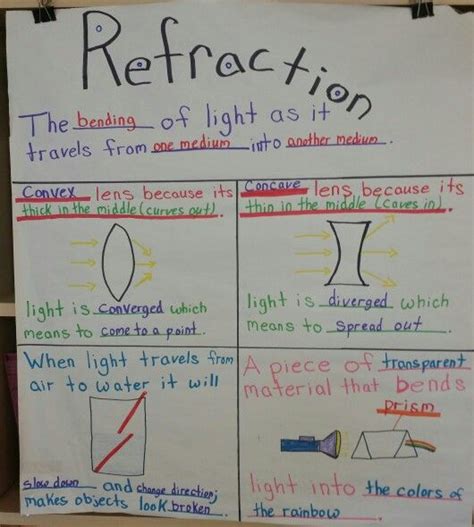 Refraction
The bending of light as it
travels from one medium into another medium.
Convex lens because its
thick in the middle (curves out).
light is converged which
means to come to a point.
Concave lens because its
thin in the middle (caves in).
light is diverged which
means to spread out.
When light travels from
air to water it will
slow down and change direction;
makes objects look broken.
A piece of transparent
material that bends
prism
light into the colors of
the rainbow.